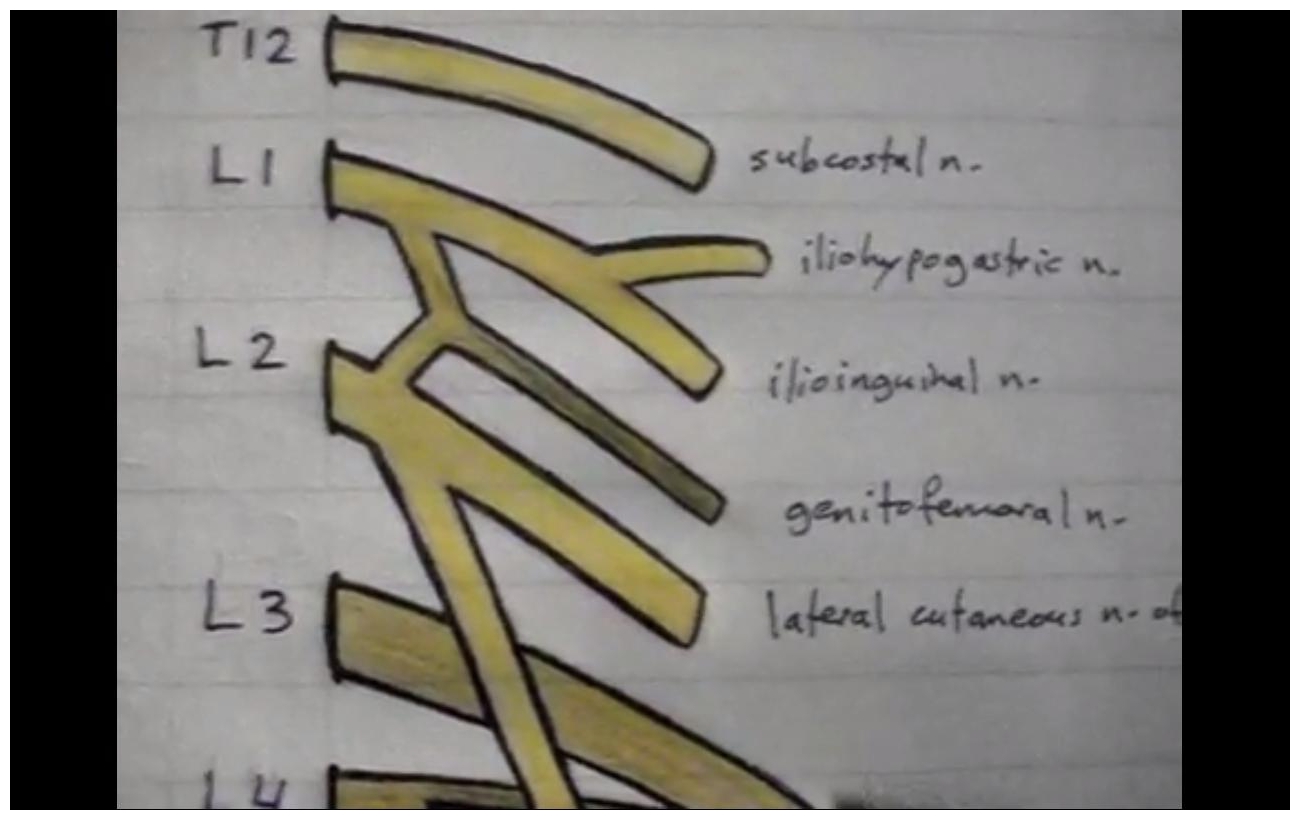 T12
subcostal n.
L1
iliohypogastric n.
L2
ilioinguinal n.
genitofemoral n.
L3
lateral cutaneous n. of
L4